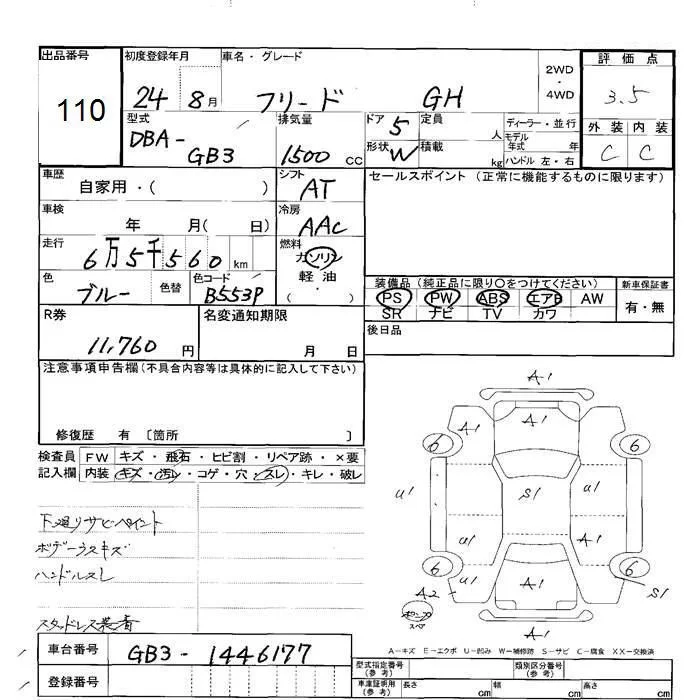 出品番号
110
初度登録年月
24 8月
車名・グレード
フリード GH
2WD
・
4WD
評価点
3.5
外装 内装
C C
型式
DBA-
GB3
排気量
1500 cc
ドア 5
形状 W
定員 人
積載 kg
ディーラー・並行
モデル
年式 年
ハンドル 左・右
車歴
自家用・( )
シフト
AT
セールスポイント (正常に機能するものに限ります)
車検
年 月( 日)
冷房
AAC
走行
6万5千560 km
燃料
ガソリン
軽油
・
( )
色
ブルー
色替
色コード
B553P
装備品 (純正品に限り〇をつけてください)
PS PW ABS エアB AW
SR ナビ TV カワ
新車保証書
有・無
R券
11,760 円
名変通知期限
月 日
後日品
注意事項申告欄(不具合内容等は具体的に記入して下さい)
修復歴 有 〔箇所 〕
検査員
記入欄
FW キズ・飛石・ヒビ割・リペア跡・×要
内装 キズ・汚レ・コゲ・穴・スレ・キレ・破レ
下廻りサビペイント
ボデーウスキズ
ハンドルスレ
スタッドレス装着
A1
A1
A1
6 6
U1 S1 U1
U1 A1
6 6
U1 A1
A2 S1
スペ
A1
A-キズ E-エクボ U-凹み W-補修跡 S-サビ C-腐食 XX-交換済
車台番号
GB3-1446177
登録番号
型式指定番号
(参考)
類別区分番号
(参考)
車庫証明用
(参考)
長さ cm 幅 cm 高さ cm